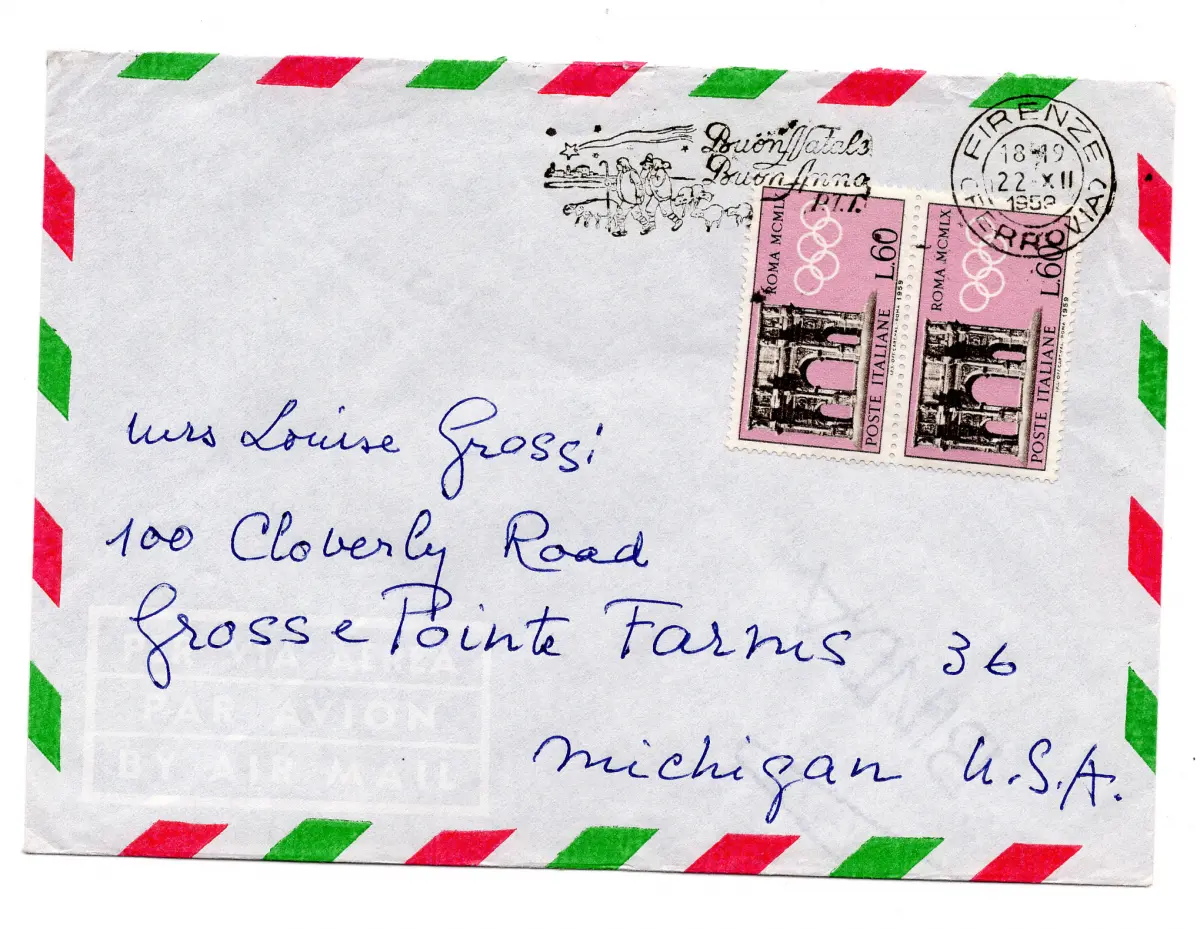 Buon Natale
Buon Anno
P.T.T.
FIRENZE
18-19
22-XII
1959
(FERROVIA)
ROMA MCMLX
L.60
POSTE ITALIANE
ROMA MCMLX
L.60
POSTE ITALIANE
Mrs Louise Grossi
100 Cloverly Road
Grosse Pointe Farms 36
Michigan U.S.A.
PER VIA AEREA
PAR AVION
BY AIR MAIL